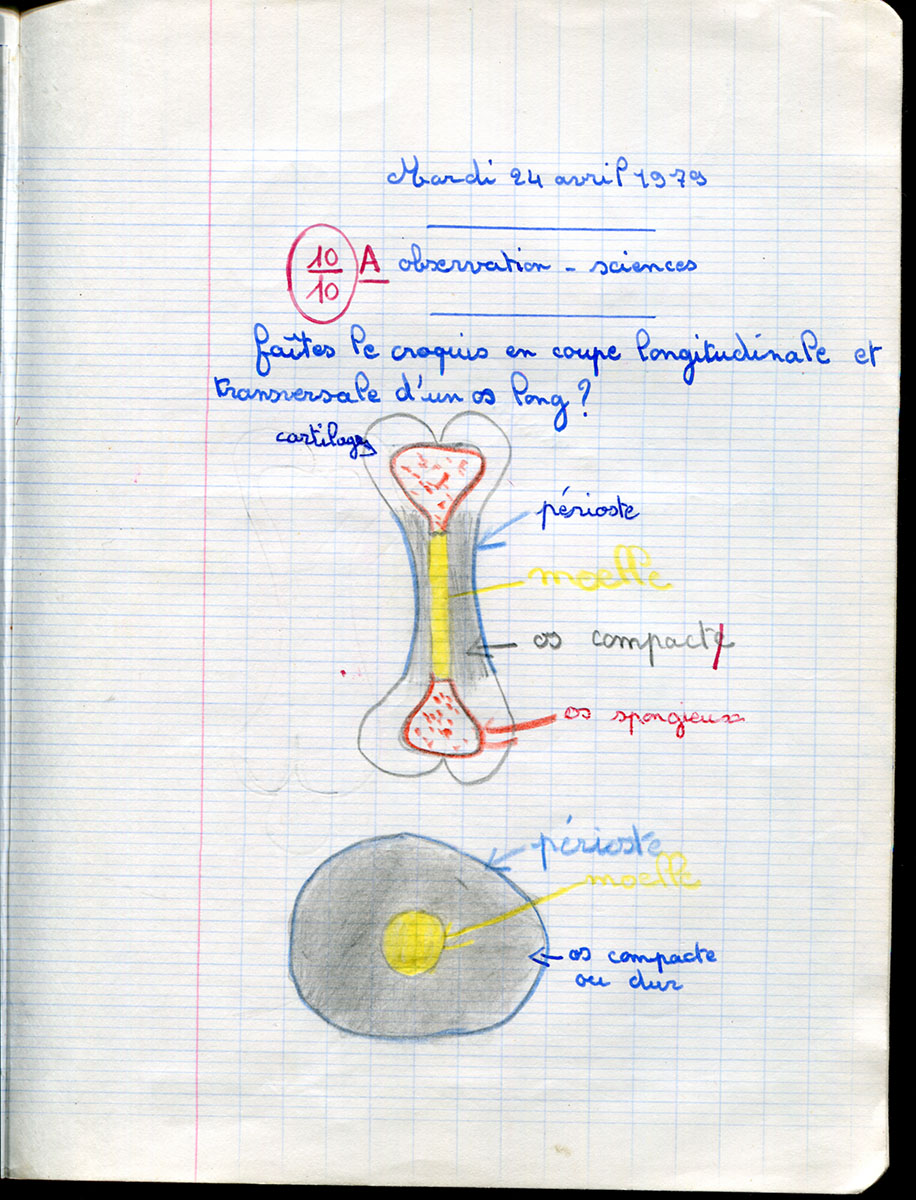 Mardi 24 avril 1979
10
10
A observation - sciences
faîtes le croquis en coupe longitudinale et
transversale d'un os long ?
cartilage
périoste
moelle
os compacte
os spongieux
périoste
moelle
os compacte
ou dur